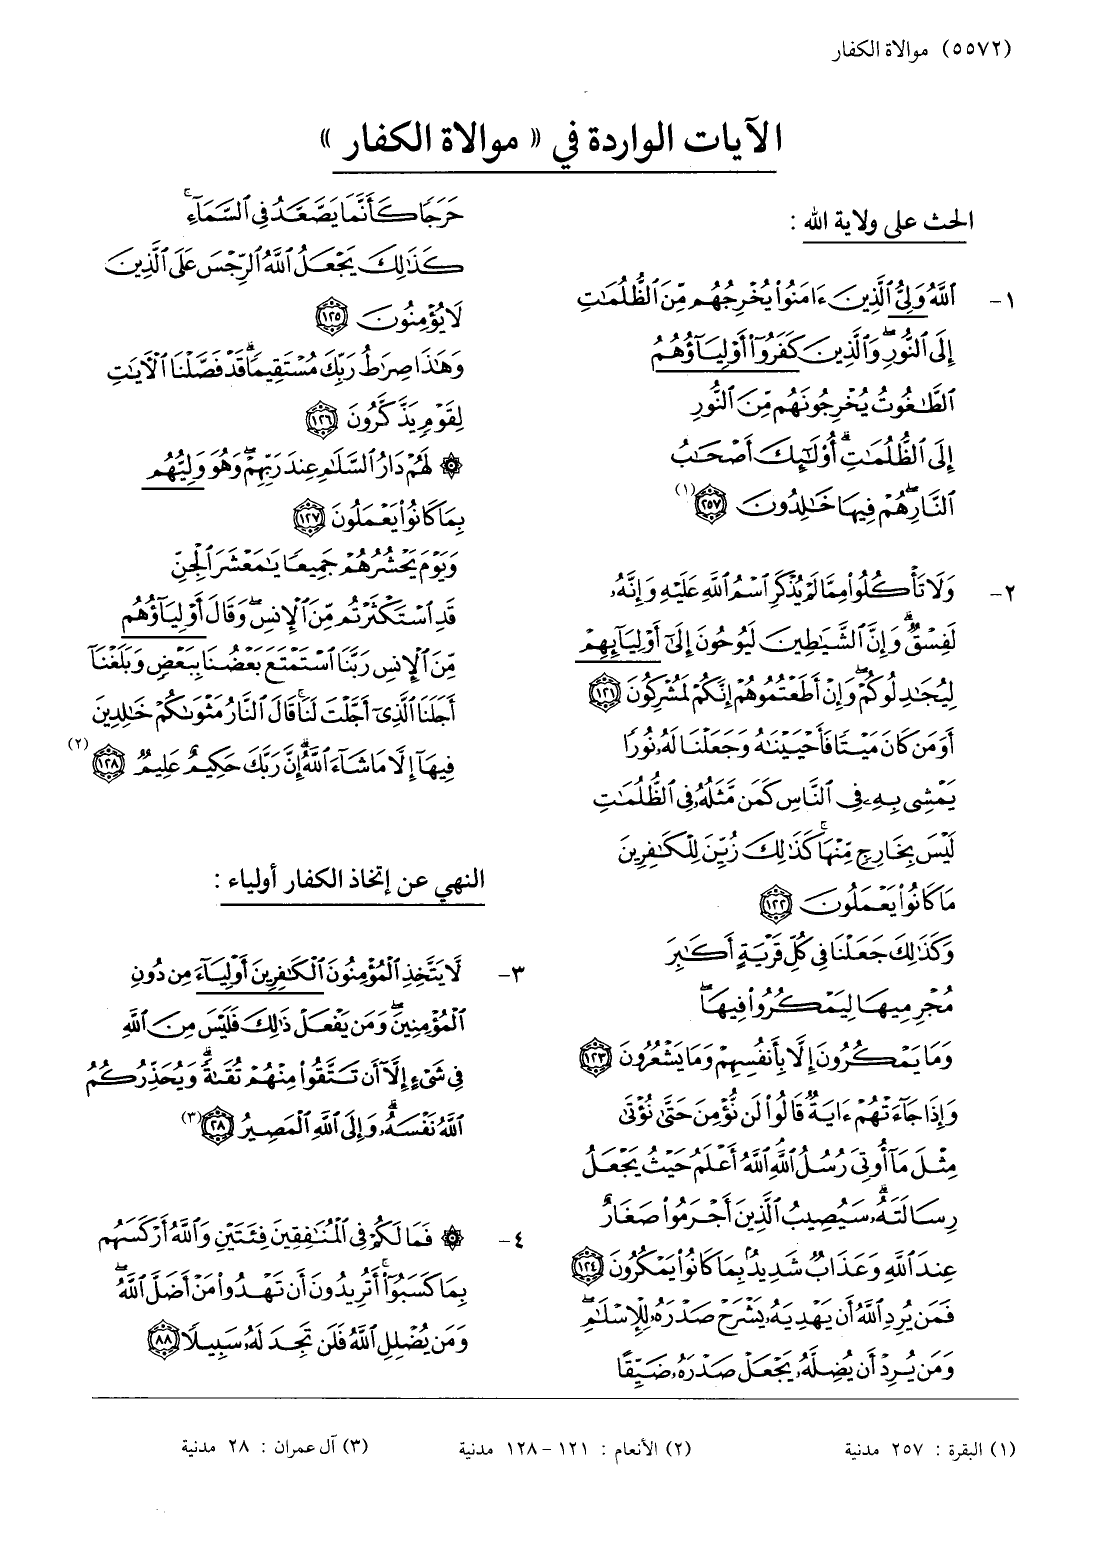 (٥٥٧٢) موالاة الكفار
الآيات الواردة في « موالاة الكفار »
الحث على ولاية الله :
١- ٱللَّهُ وَلِىُّ ٱلَّذِينَ ءَامَنُوا۟ يُخْرِجُهُم مِّنَ ٱلظُّلُمَٰتِ
إِلَى ٱلنُّورِ ۖ وَٱلَّذِينَ كَفَرُوٓا۟ أَوْلِيَآؤُهُمُ
ٱلطَّٰغُوتُ يُخْرِجُونَهُم مِّنَ ٱلنُّورِ
إِلَى ٱلظُّلُمَٰتِ ۗ أُو۟لَٰٓئِكَ أَصْحَٰبُ
ٱلنَّارِ ۖ هُمْ فِيهَا خَٰلِدُونَ ٢٥٧ (١)
٢- وَلَا تَأْكُلُوا۟ مِمَّا لَمْ يُذْكَرِ ٱسْمُ ٱللَّهِ عَلَيْهِ وَإِنَّهُۥ
لَفِسْقٌ ۗ وَإِنَّ ٱلشَّيَٰطِينَ لَيُوحُونَ إِلَىٰٓ أَوْلِيَآئِهِمْ
لِيُجَٰدِلُوكُمْ ۖ وَإِنْ أَطَعْتُمُوهُمْ إِنَّكُمْ لَمُشْرِكُونَ ١٢١
أَوَمَن كَانَ مَيْتًا فَأَحْيَيْنَٰهُ وَجَعَلْنَا لَهُۥ نُورًا
يَمْشِى بِهِۦ فِى ٱلنَّاسِ كَمَن مَّثَلُهُۥ فِى ٱلظُّلُمَٰتِ
لَيْسَ بِخَارِجٍ مِّنْهَا ۚ كَذَٰلِكَ زُيِّنَ لِلْكَٰفِرِينَ
مَا كَانُوا۟ يَعْمَلُونَ ١٢٢
وَكَذَٰلِكَ جَعَلْنَا فِى كُلِّ قَرْيَةٍ أَكَٰبِرَ
مُجْرِمِيهَا لِيَمْكُرُوا۟ فِيهَا ۖ
وَمَا يَمْكُرُونَ إِلَّا بِأَنفُسِهِمْ وَمَا يَشْعُرُونَ ١٢٣
وَإِذَا جَآءَتْهُمْ ءَايَةٌ قَالُوا۟ لَن نُّؤْمِنَ حَتَّىٰ نُؤْتَىٰ
مِثْلَ مَآ أُوتِىَ رُسُلُ ٱللَّهِ ۘ ٱللَّهُ أَعْلَمُ حَيْثُ يَجْعَلُ
رِسَالَتَهُۥ ۗ سَيُصِيبُ ٱلَّذِينَ أَجْرَمُوا۟ صَغَارٌ
عِندَ ٱللَّهِ وَعَذَابٌ شَدِيدٌۢ بِمَا كَانُوا۟ يَمْكُرُونَ ١٢٤
فَمَن يُرِدِ ٱللَّهُ أَن يَهْدِيَهُۥ يَشْرَحْ صَدْرَهُۥ لِلْإِسْلَٰمِ ۖ
وَمَن يُرِدْ أَن يُضِلَّهُۥ يَجْعَلْ صَدْرَهُۥ ضَيِّقًا
حَرَجًا كَأَنَّمَا يَصَّعَّدُ فِى ٱلسَّمَآءِ ۚ
كَذَٰلِكَ يَجْعَلُ ٱللَّهُ ٱلرِّجْسَ عَلَى ٱلَّذِينَ
لَا يُؤْمِنُونَ ١٢٥
وَهَٰذَا صِرَٰطُ رَبِّكَ مُسْتَقِيمًا ۗ قَدْ فَصَّلْنَا ٱلْءَايَٰتِ
لِقَوْمٍ يَذَّكَّرُونَ ١٢٦
۞ لَهُمْ دَارُ ٱلسَّلَٰمِ عِندَ رَبِّهِمْ ۖ وَهُوَ وَلِيُّهُم
بِمَا كَانُوا۟ يَعْمَلُونَ ١٢٧
وَيَوْمَ يَحْشُرُهُمْ جَمِيعًا يَٰمَعْشَرَ ٱلْجِنِّ
قَدِ ٱسْتَكْثَرْتُم مِّنَ ٱلْإِنسِ ۖ وَقَالَ أَوْلِيَآؤُهُم
مِّنَ ٱلْإِنسِ رَبَّنَا ٱسْتَمْتَعَ بَعْضُنَا بِبَعْضٍ وَبَلَغْنَآ
أَجَلَنَا ٱلَّذِىٓ أَجَّلْتَ لَنَا ۚ قَالَ ٱلنَّارُ مَثْوَىٰكُمْ خَٰلِدِينَ
فِيهَآ إِلَّا مَا شَآءَ ٱللَّهُ ۗ إِنَّ رَبَّكَ حَكِيمٌ عَلِيمٌ ١٢٨ (٢)
النهي عن إتخاذ الكفار أولياء :
٣- لَّا يَتَّخِذِ ٱلْمُؤْمِنُونَ ٱلْكَٰفِرِينَ أَوْلِيَآءَ مِن دُونِ
ٱلْمُؤْمِنِينَ ۖ وَمَن يَفْعَلْ ذَٰلِكَ فَلَيْسَ مِنَ ٱللَّهِ
فِى شَىْءٍ إِلَّآ أَن تَتَّقُوا۟ مِنْهُمْ تُقَىٰةً ۗ وَيُحَذِّرُكُمُ
ٱللَّهُ نَفْسَهُۥ ۗ وَإِلَى ٱللَّهِ ٱلْمَصِيرُ ٢٨ (٣)
٤- ۞ فَمَا لَكُمْ فِى ٱلْمُنَٰفِقِينَ فِئَتَيْنِ وَٱللَّهُ أَرْكَسَهُم
بِمَا كَسَبُوٓا۟ ۚ أَتُرِيدُونَ أَن تَهْدُوا۟ مَنْ أَضَلَّ ٱللَّهُ ۖ
وَمَن يُضْلِلِ ٱللَّهُ فَلَن تَجِدَ لَهُۥ سَبِيلًا ٨٨
(١) البقرة : ٢٥٧ مدنية (٢) الأنعام : ١٢١ - ١٢٨ مدنية (٣) آل عمران : ٢٨ مدنية